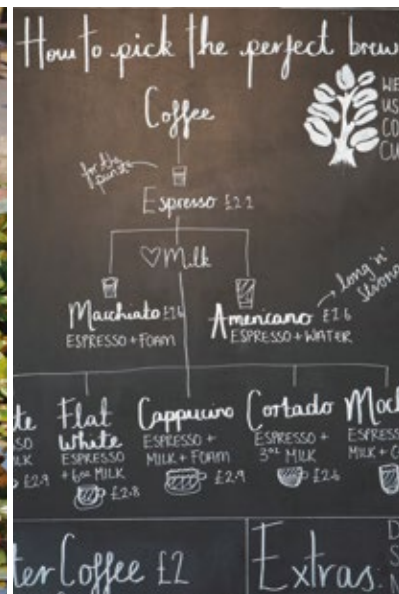 How to pick the perfect brew
Coffee
WE
US
CO
CU
for the
purist
Espresso £2.2
♡Milk
long 'n'
strong
Macchiato £2.6
ESPRESSO + FOAM
Americano £2.6
ESPRESSO + WATER
te
SSO
ILK
£2.9
Flat
White
ESPRESSO
+ 6oz MILK
£2.8
Cappucino
ESPRESSO +
MILK + FOAM
£2.9
Cortado
ESPRESSO +
3oz MILK
£2.6
Moc
ESPRESS
MILK + C
ter Coffee £2
Extras: